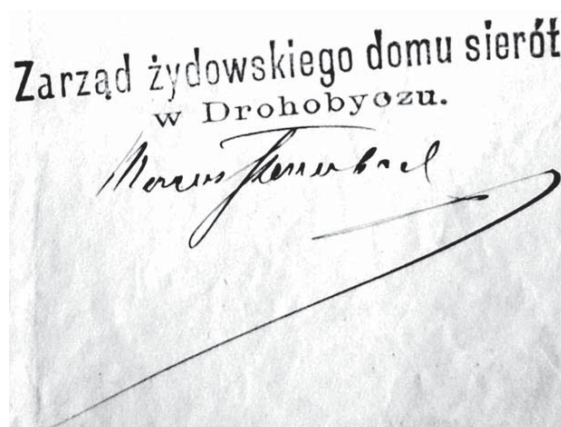 Zarząd żydowskiego domu sierót
w Drohobyczu.
Marcus